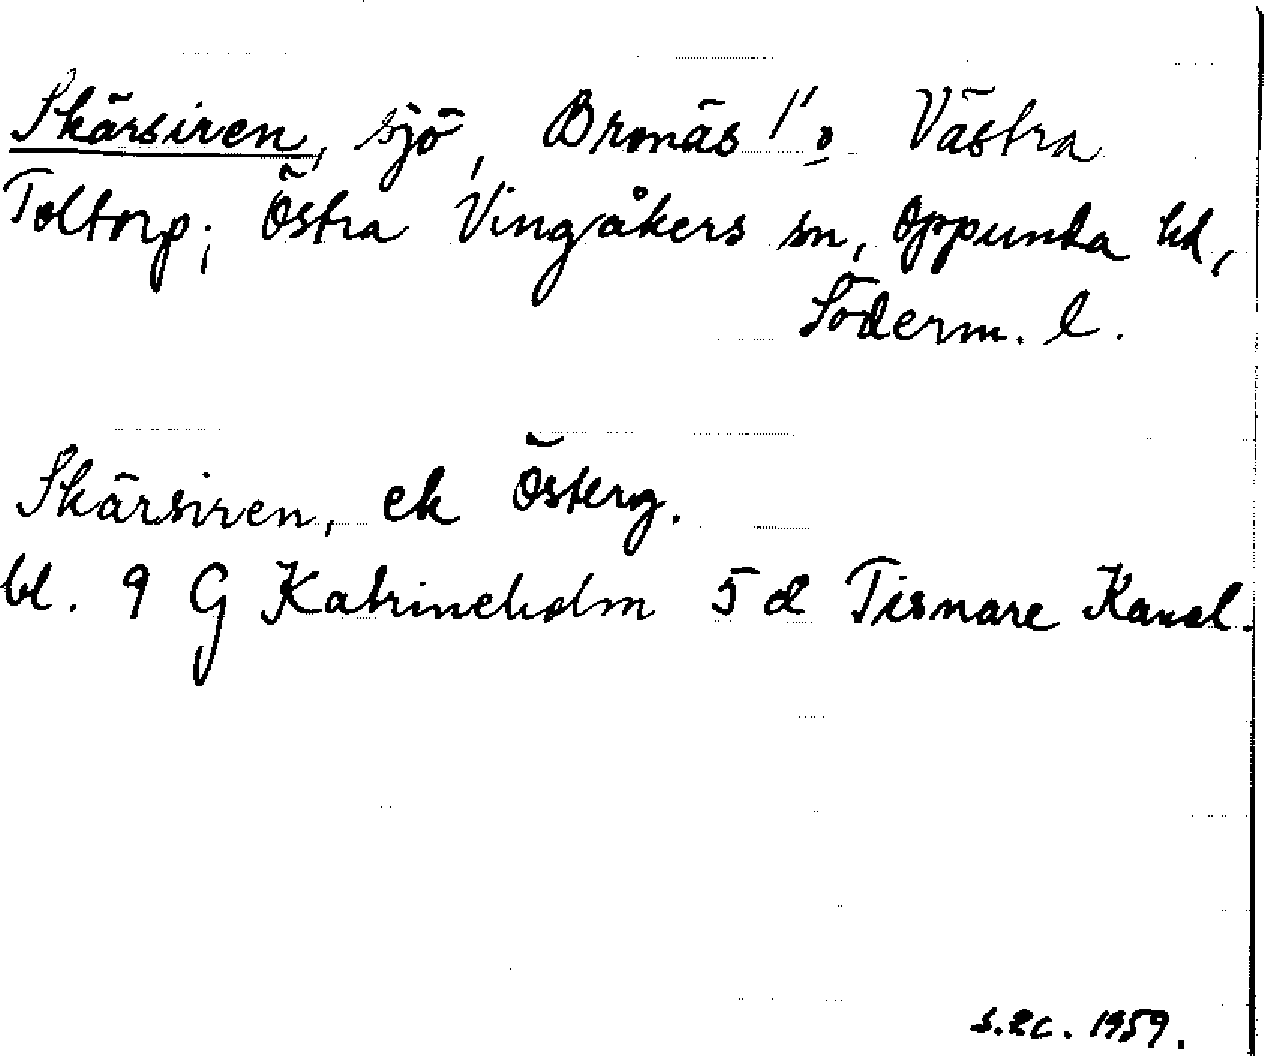 Skärsiren, sjö, Bronäs 1/1 o Västra
Toltorp; Östra Vingåkers sn, Oppunda hd,
Söderm. l.
Skärsiren, ek Österg.
bl. 9 G Katrineholm 5 d Tisnare Kanal.
1959.